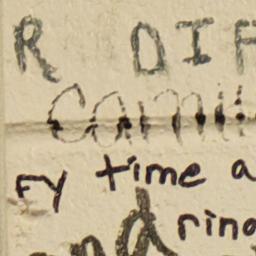 R DIF
Camil
FY time a
nd rino